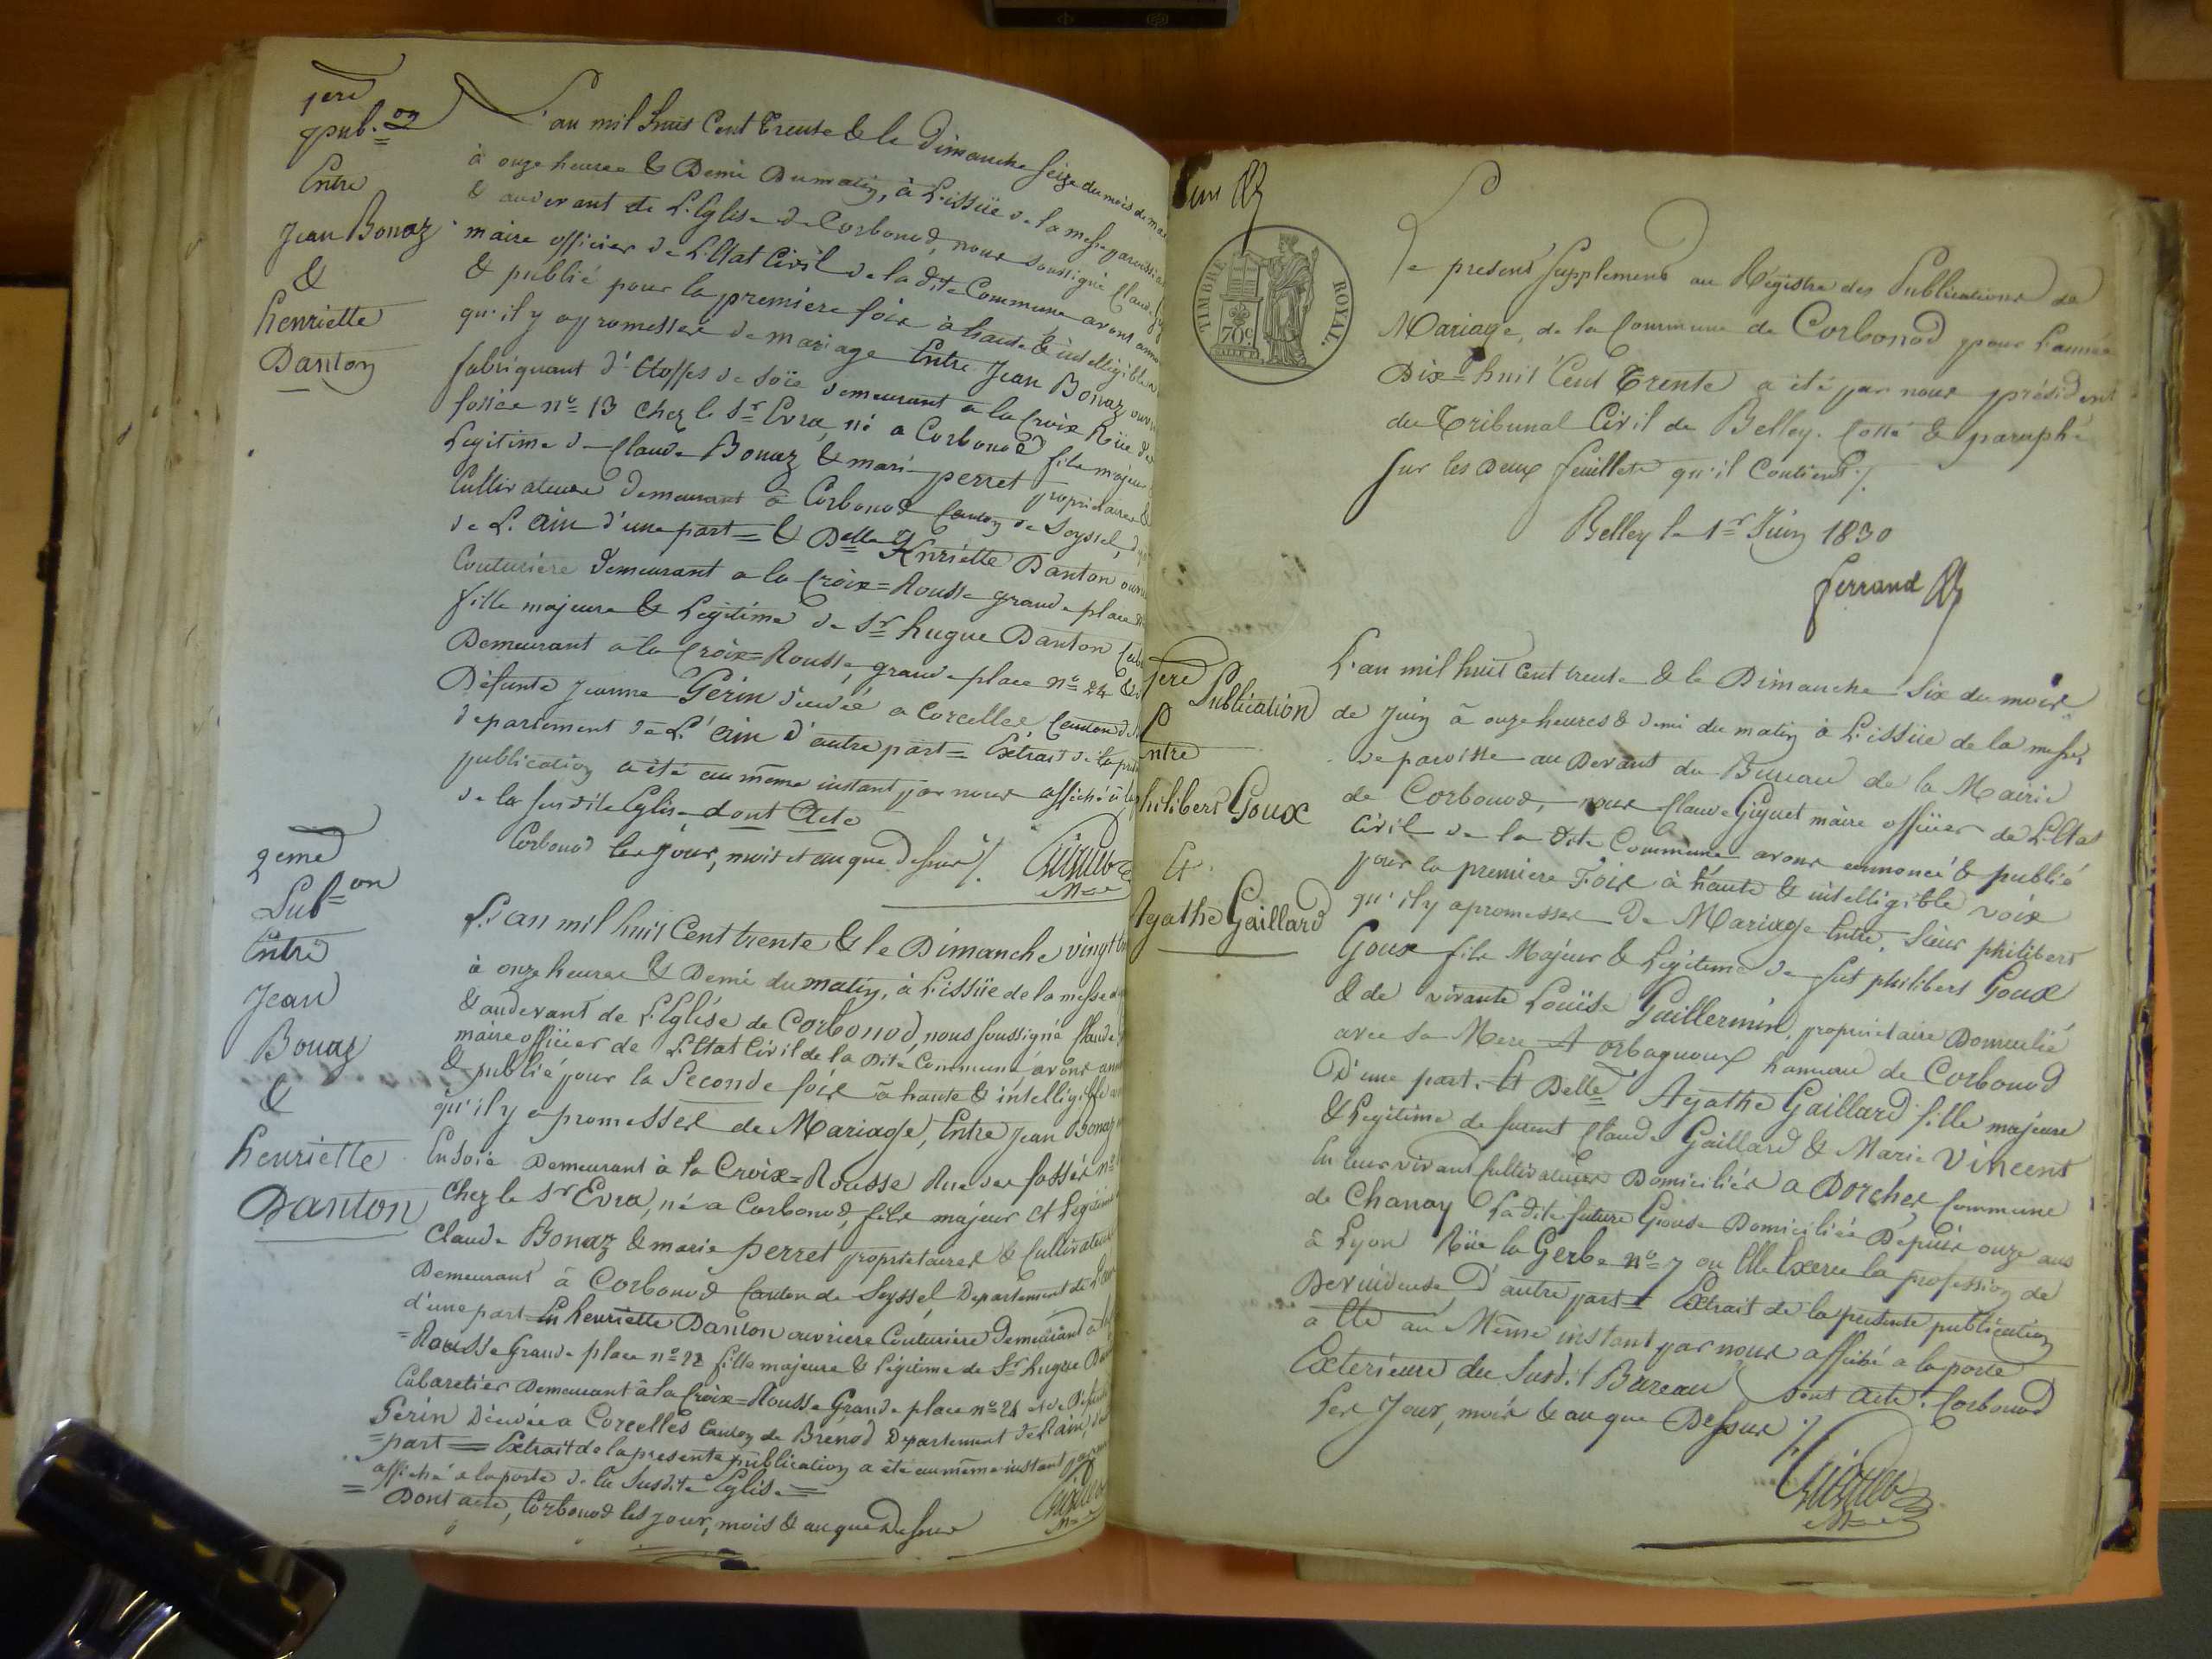 1ere
pub.on
Entre
Jean Bonaz
&
henriette
Danton
L'an mil huit Cent Trente & le Dimanche seize du mois de mai
à onze heures & Demi Du matin, à L'issüe de la messe paroissial
& audevant de L'Eglise de Corbonod, nous soussigné Claude
maire officier de L'Etat Civil de la dite Commune avons
& publié pour la premiere fois à haute & intelligible
qu'il y a promesses de mariage Entre Jean Bonaz
fabriquant d'Etoffes de soïe demeurant a la Croix Rüe des
fossée n° 13 chez le Sr Evra, né a Corbonod fils majeur
Legitime de Claude Bonaz & marie perret proprietaires &
Cultivateurs demeurant à Corbonod Canton de Seyssel,
de L'ain d'une part = & Delle Henriette Danton
Couturière demeurant a la Croix=Rousse grande place
fille majeure & Legitime de Sr hugue Danton
Demeurant a la Croix=Rousse, grande place n° 24 &
Défunte Jeanne Gerin décédée a Corcelles Canton de
departement de L'ain d'autre part = Extrait de la
publication a été au même instant par nous affiché à
de la susdite Eglise dont Acte
Corbonod les jour, mois et an que dessus ./.
2eme
Pub=on
Entre
Jean
Bonaz
&
henriette
Danton
L'an mil huit Cent trente & le Dimanche vingt
à onze heures & Demi du matin, à L'issüe de la messe
& audevant de L'Eglise de Corbonod, nous soussigné Claude
maire officier de L'Etat Civil de la Dite Commune avons
& publié pour la Seconde fois à haute & intelligible
qu'il y a promesses de Mariage, Entre Jean Bonaz
En soie Demeurant à la Croix=Rousse Rue des fossés n°
chez le Sr Evra, né a Corbonod, fils majeur et Legitime
Claude Bonaz & marie perret proprietaires & Cultivateurs
Demeurant à Corbonod Canton de Seyssel Departement de L'ain
d'une part henriette Danton ouvriere Couturiere Demeurant à la
=Rousse Grande place n° 22 fille majeure & Légitime de Sr hugue
Cabaretier Demeurant à la Croix=Rousse Grande place n° 24 et de
Gerin Décédée a Corcelles Canton de Brenod Departement de L'ain,
=part = Extrait de la presente publication a été au même instant par
affiché a la porte de la susdite Eglise =
= Dont acte, Corbonod les jour, mois & an que Dessus
TIMBRE ROYAL.
70c.
Le present Supplement au Régistre des Publications de
Mariage, de la Commune de Corbonod pour L'année
Dix=huit Cent Trente a été par nous président
du Tribunal Civil de Belley, Cotté & paraphé
sur les Deux feuillets qu'il Contient ./.
Belley le 1er Juin 1830
ferrand
1ere
Publication
Entre
philibert Goux
Et
Agathe Gaillard
L'an mil huit Cent trente & le Dimanche Six du mois
de Juin à onze heures & demi du matin à L'issüe de la messe
de paroisse au Devant du Bureau de la Mairie
de Corbonod, nous Claude Giguet maire officier de L'Etat
Civil de la Dite Commune avons annoncé & publié
pour la premiere Fois à haute & intelligible voix
qu'il y a promesses De Mariage Entre, Sieur philibert
Goux fils Majeur & Légitime de feut philibert Goux
& de vivante Louïse Guillermin, proprietaire Domicilié
avec sa Mere A orbagnoux hameau de Corbonod
D'une part. Et Delle Agathe Gaillard fille majeure
& Legitime de furent Claude Gaillard & Marie Vincent
En leur vivant Cultivateurs Domiciliés a Dorches, Commune
de Chanay La dite future Epouse Domiciliée Depuis onze ans
à Lyon Rüe la Gerbe n° 7 ou Elle Exerce la profession de
Devideuse D'autre part = Extrait de la presente publication
a Eté au Même instant par nous affiché a la porte
Exterieure du Susdit Bureau Dont acte. Corbonod
Les Jour, mois & an que Dessus ./.